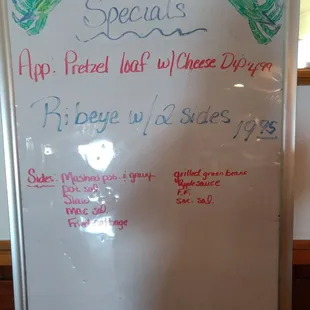 Specials
App: Pretzel loaf w/ Cheese Dip 4.99
Ribeye w/ 2 Sides 19.95
Sides: Mashed pot. & gravy
pot. sal.
Slaw
mac sal.
Fried cabbage
grilled green beans
applesauce
F.F.
sm. sal.